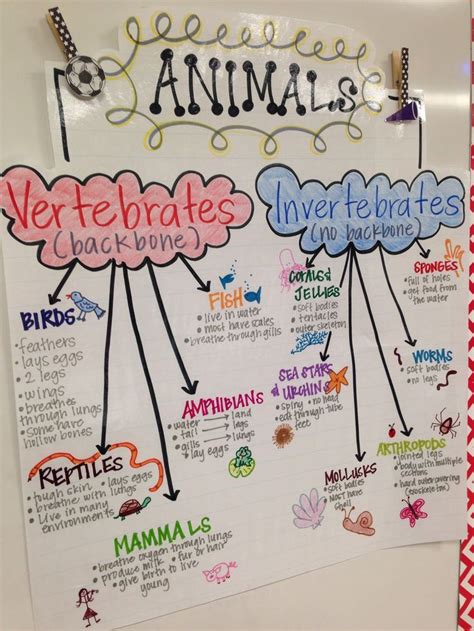 ANIMALS
Vertebrates
(backbone)
Invertebrates
(no backbone)
BIRDS
• feathers
• lays eggs
• 2 legs
• wings
• breathes
through lungs
• some have
hollow bones
REPTILES
• tough skin • lays eggs
• breathe with lungs
• live in many
environments
MAMMALS
• breathe oxygen through lungs
• produce milk • fur or hair
• give birth to live
young
AMPHIBIANS
water → land
tail → legs
gills → lungs
lay eggs
FISH
• live in water
• most have scales
• breathe through gills
CORALS &
JELLIES
• soft bodies
• tentacles
• outer skeleton
SEA STARS
& URCHINS
• spiny • no head
• eat through tube
feet
MOLLUSKS
• soft bodies
• most have
shell
ARTHROPODS
• jointed legs
• body with multiple
sections
• hard outer covering
(exoskeleton)
WORMS
• soft bodies
• no legs
SPONGES
• full of holes
• get food from
the water